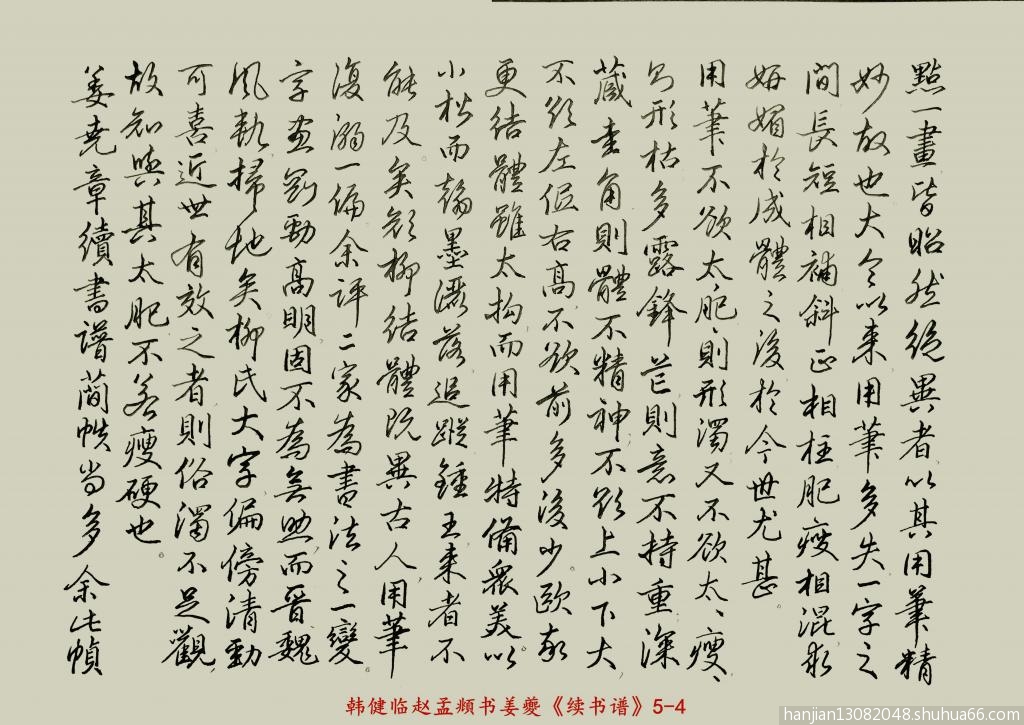 點一畫皆昭然絕異者以其用筆精
妙故也大令以來用筆多失一字之
間長短相補斜正相柱肥瘦相混求
妍媚於成體之後於今世尤甚
用筆不欲太肥、則形濁又不欲太、瘦、
則形枯多露鋒芒則意不持重深
藏圭角則體不精神不欲上小下大
不欲左低右高不欲前多後少歐率
更結體雖太拘而用筆特備衆美以
小楷而翰墨灑落追蹤鍾王來者不
能及矣顏柳結體既異古人用筆
復溺一偏余評二家為書法之一變
字畫剛勁高明固不為無助而晉魏
風軌掃地矣柳氏大字偏傍清勁
可喜近世有效之者則俗濁不足觀
故知與其太肥不若瘦硬也
姜堯章續書譜蘭帙尚多余此幀
韩健临赵孟頫书姜夔《续书谱》5-4
hanjian13082048.shuhua66.com